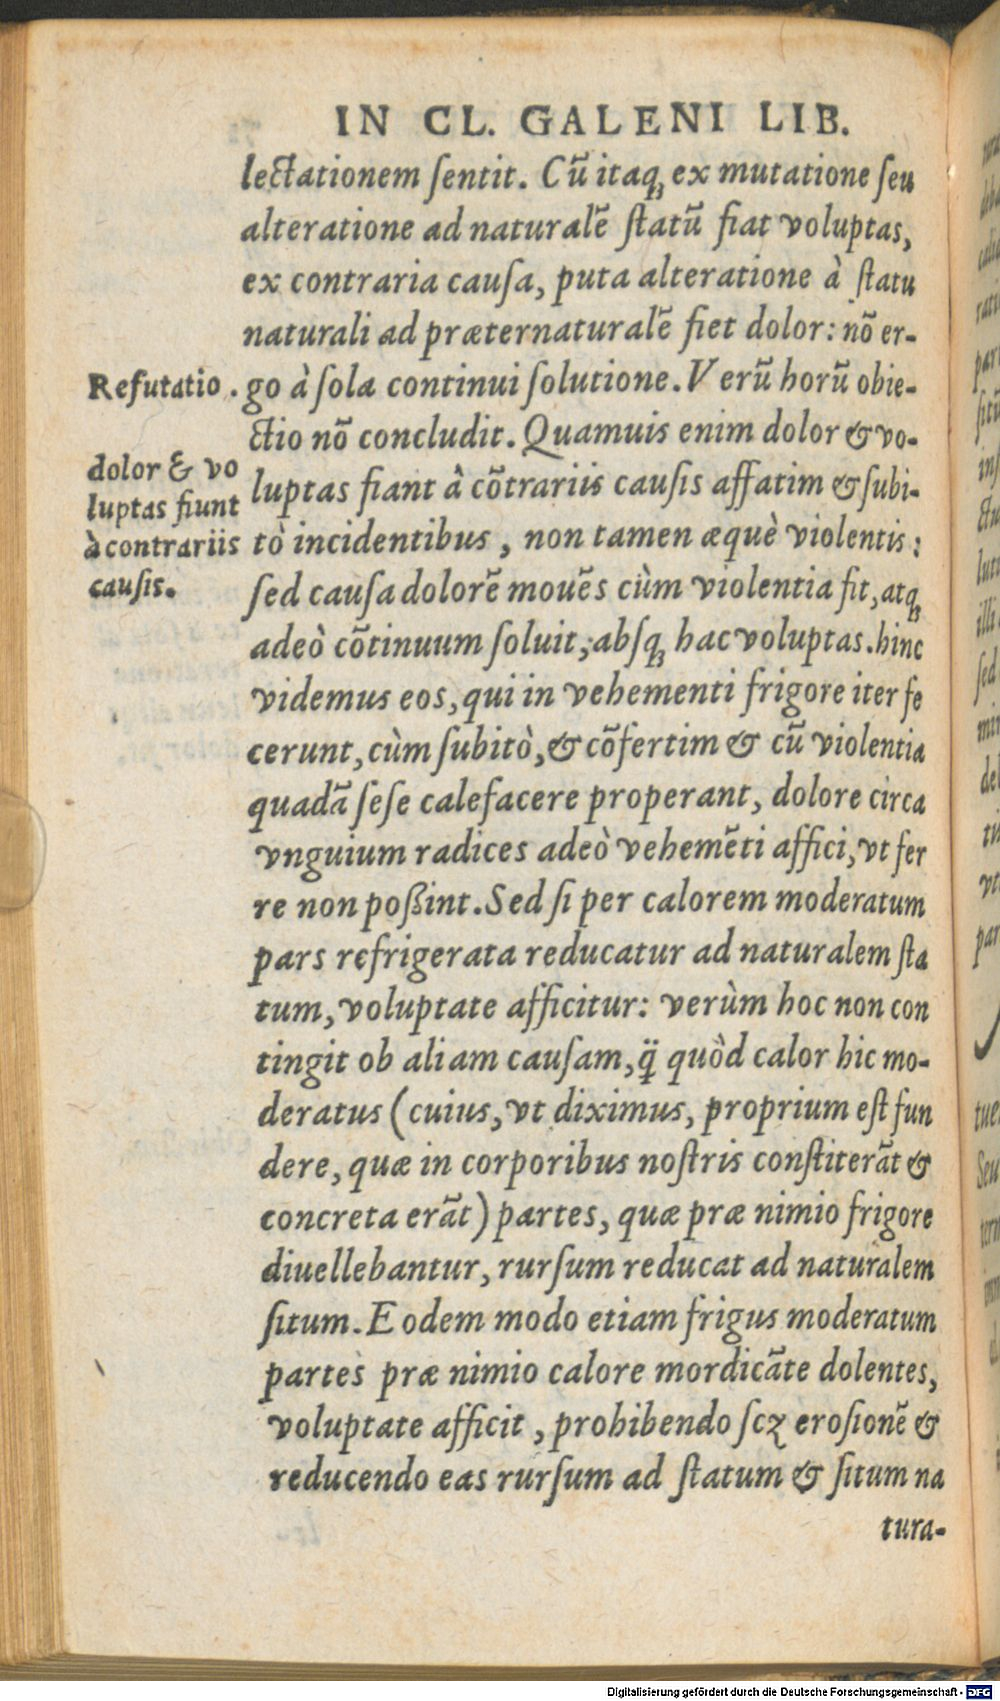 IN CL. GALENI LIB.
lectationem ſentit. Cũ itaq; ex mutatione ſeu
alteratione ad naturalẽ ſtatũ fiat voluptas,
ex contraria cauſa, puta alteratione à ſtatu
naturali ad præternaturalẽ fiet dolor: nõ er-
Refutatio.
go à ſola continui ſolutione. Verũ horũ obie-
ctio nõ concludit. Quamuis enim dolor & vo-
dolor & vo
luptas fiunt
à contrariis
cauſis.
luptas fiant à cõtrariis cauſis affatim & ſubi-
tò incidentibus, non tamen æquè violentis:
ſed cauſa dolorẽ mouẽs cùm violentia fit, atq;
adeò cõtinuum ſoluit; abſq; hac voluptas. hinc
videmus eos, qui in vehementi frigore iter fe
cerunt, cùm ſubitò, & cõfertim & cũ violentia
quadã ſeſe calefacere properant, dolore circa
vnguium radices adeò vehemẽti affici, vt fer
re non poßint. Sed ſi per calorem moderatum
pars refrigerata reducatur ad naturalem ſta
tum, voluptate afficitur: verùm hoc non con
tingit ob aliam cauſam, q̃ quòd calor hic mo-
deratus (cuius, vt diximus, proprium eſt fun
dere, quæ in corporibus noſtris conſtiterãt &
concreta erãt) partes, quæ præ nimio frigore
diuellebantur, rurſum reducat ad naturalem
ſitum. Eodem modo etiam frigus moderatum
partes præ nimio calore mordicãte dolentes,
voluptate afficit, prohibendo ſcꝫ eroſionẽ &
reducendo eas rurſum ad ſtatum & ſitum na
tura-
Digitalisierung gefördert durch die Deutsche Forschungsgemeinschaft - DFG